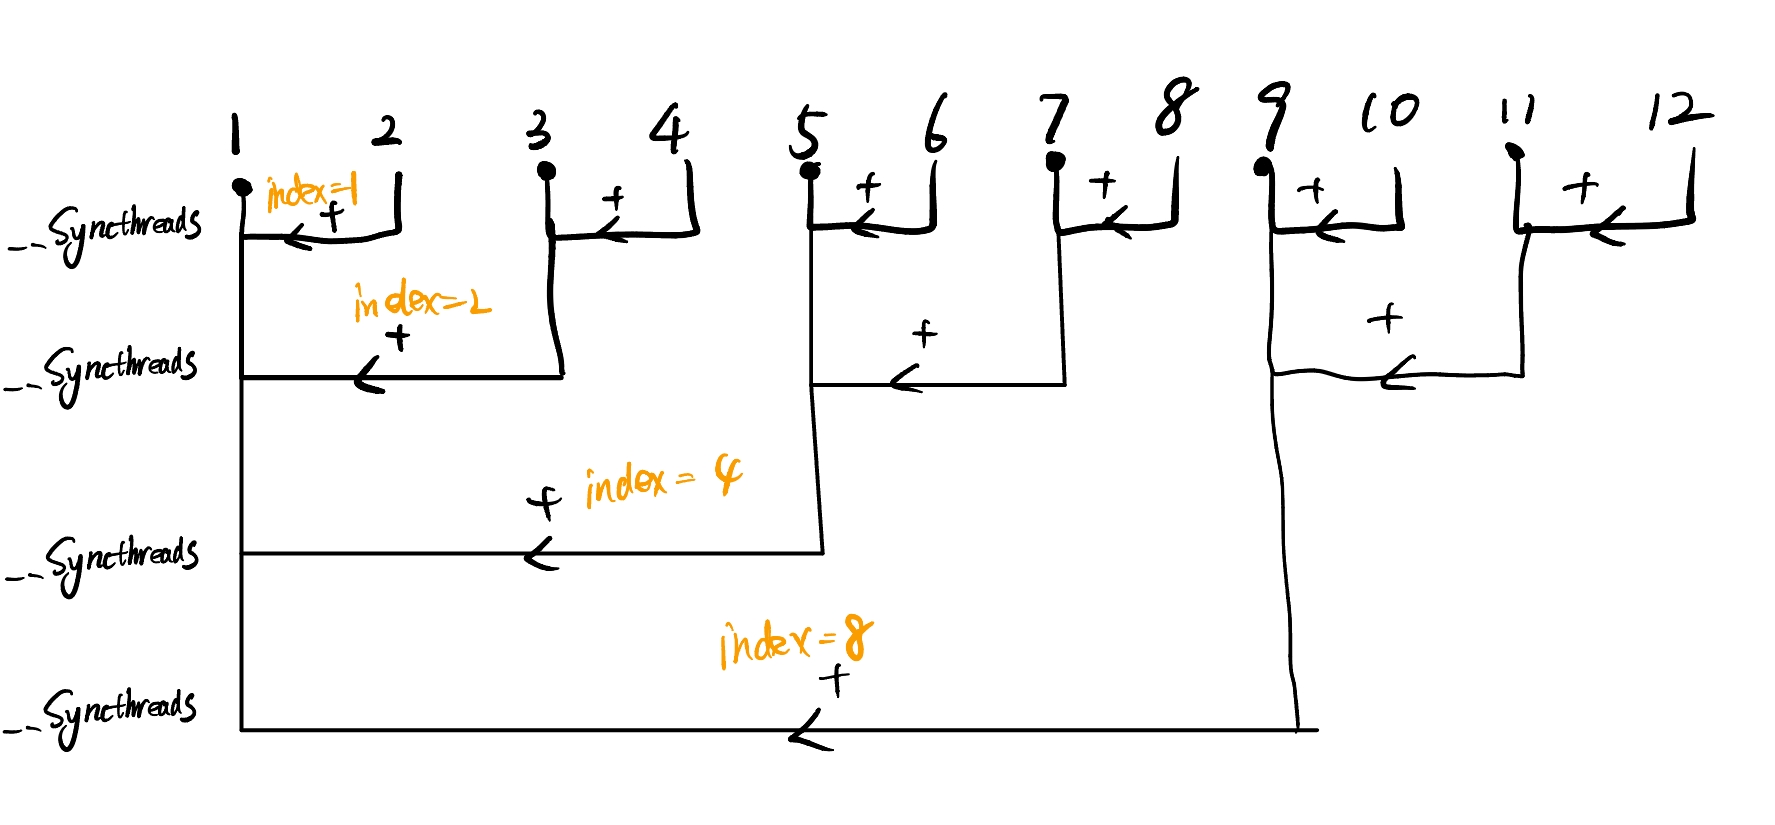 1 2 3 4 5 6 7 8 9 10 11 12
index=1
+ + + + + +
__Syncthreads
index=2
+ + +
__Syncthreads
index=4
+
__Syncthreads
index=8
+
__Syncthreads